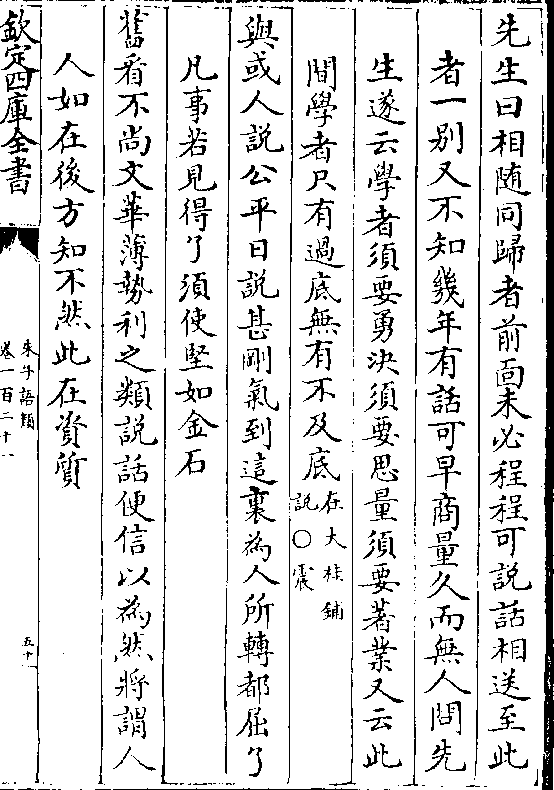 先生曰相隨同歸者前面未必程程可説話相送至此
者一别又不知幾年有話可早商量久而無人問先
生遂云學者須要勇決須要思量須要著業又云此
間學者只有過底無有不及底在大桂鋪説○震
與或人説公平日説甚剛氣到這裏為人所轉都屈了
凡事若見得了須使堅如金石
舊看不尚文華薄勢利之類説話便信以為然將謂人
人如在後方知不然此在資質
欽定四庫全書
朱子語類
卷一百二十一
五十